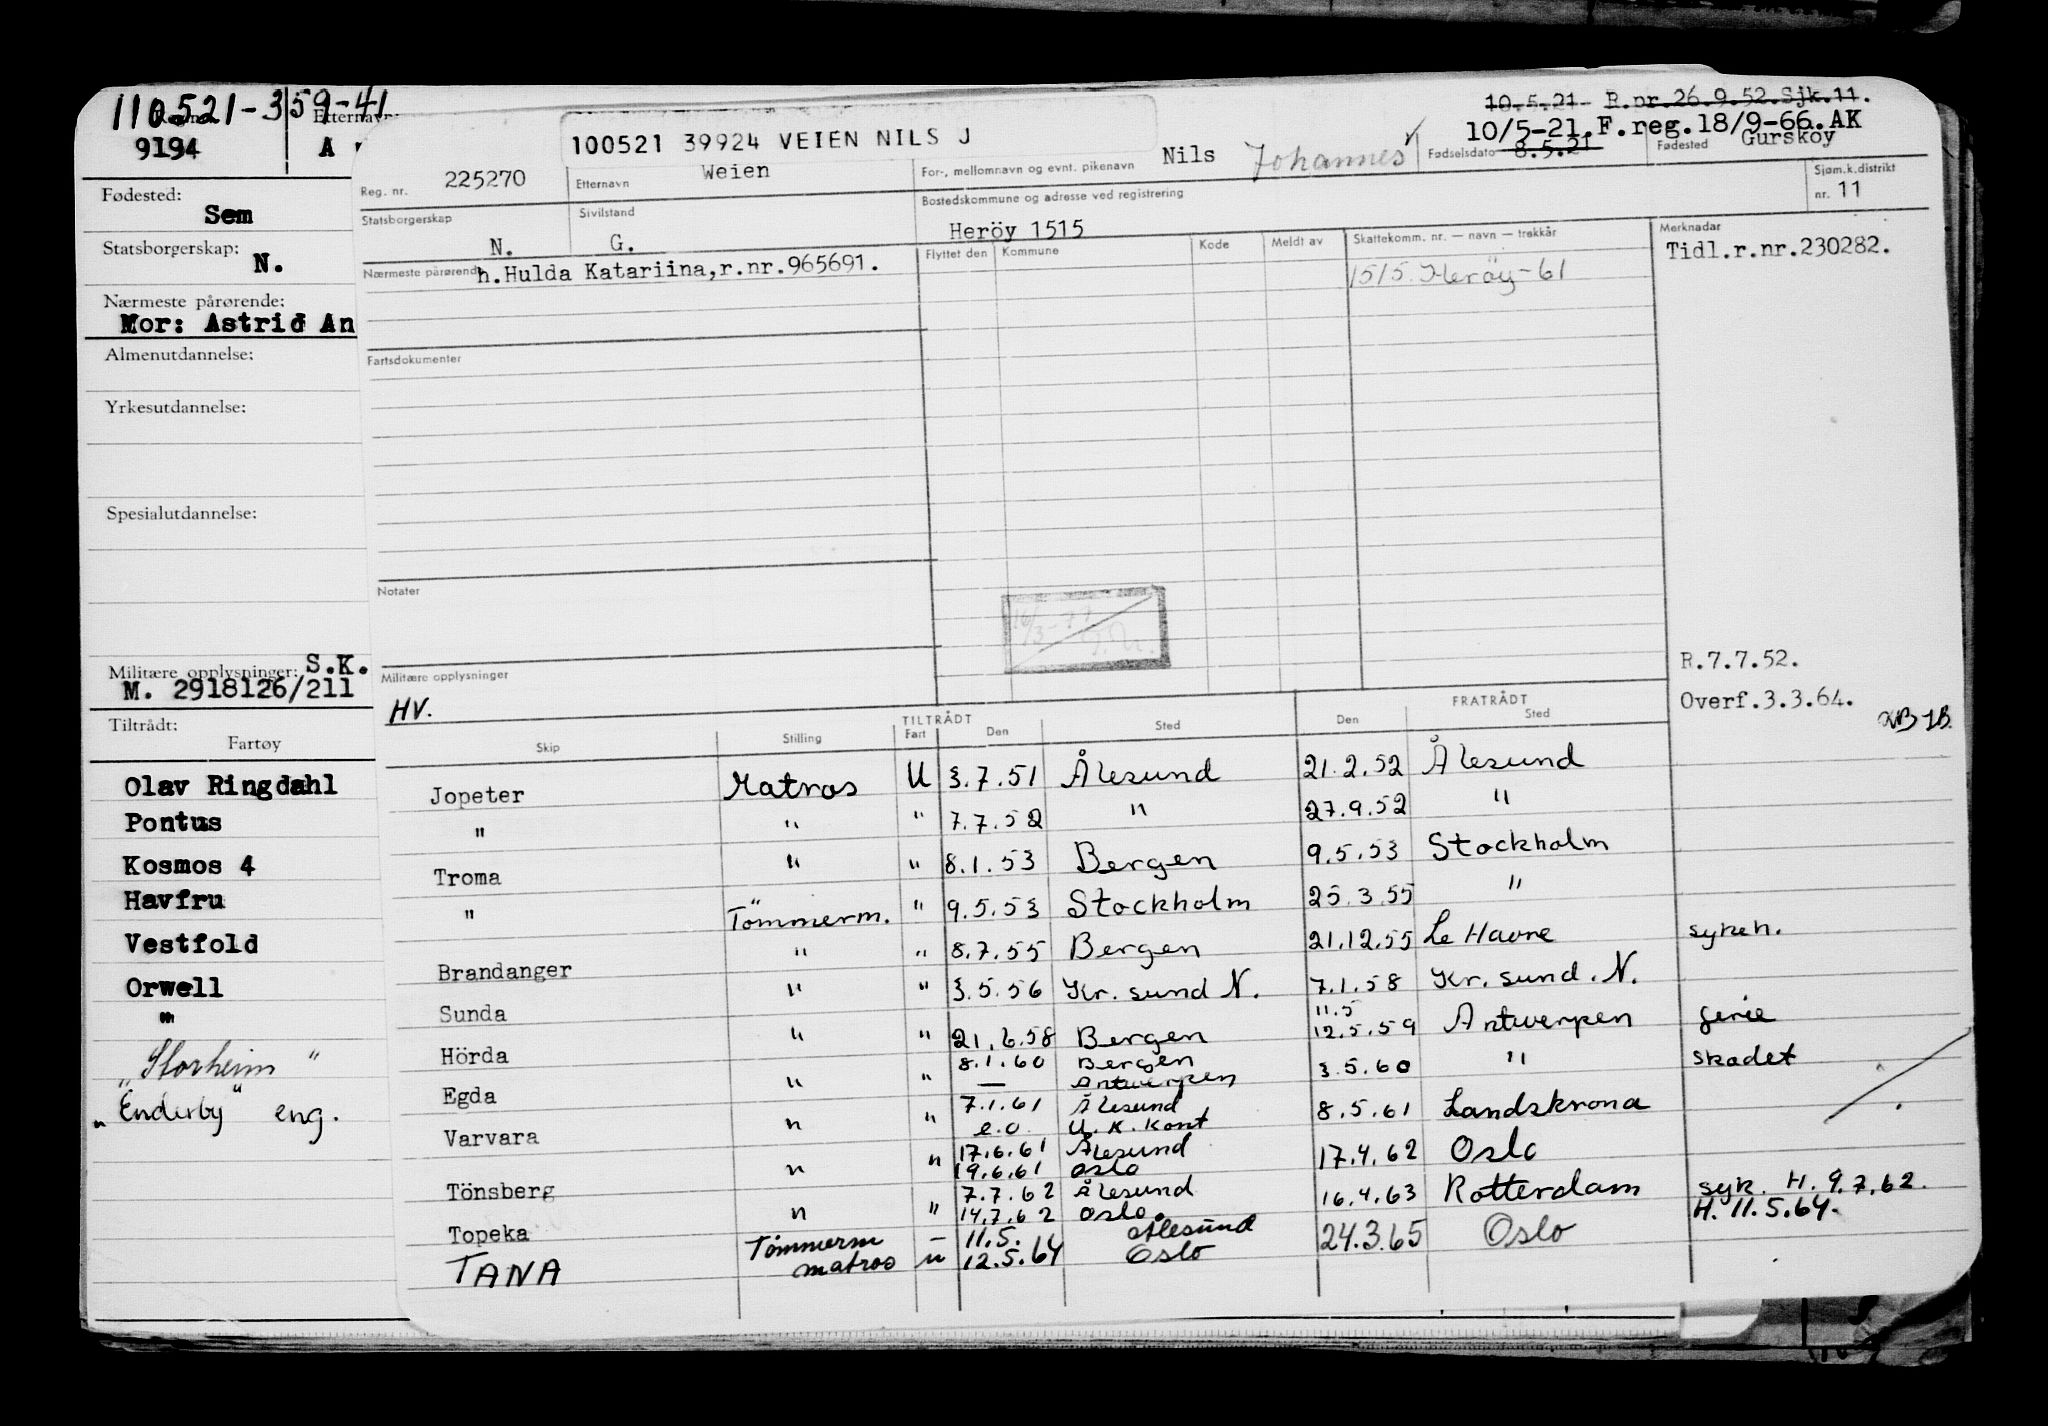 110521-359-41
9194
Etternavn:
A
Fødested:
Sem
Statsborgerskap:
N.
Nærmeste pårørende:
Mor: Astrid An
Almenutdannelse:
Yrkesutdannelse:
Spesialutdannelse:
Militære opplysninger: S.K.
M. 2918126/211
Tiltrådt:
Fartøy
Olav Ringdahl
Pontus
Kosmos 4
Havfru
Vestfold
Orwell
"
"Storheim"
"Enderby" eng.
100521 39924 VEIEN NILS J
10.5.21- R.nr.26.9.52.Sjk.11.
10/5-21.F.reg.18/9-66.AK
Reg. nr. 225270
Etternavn Weien
For-, mellomnavn og evnt. pikenavn Nils Johannes ✓
Fødselsdato 8.5.21
Fødested Gurskøy
Statsborgerskap N.
Sivilstand G.
Bostedskommune og adresse ved registrering
Heröy 1515
Sjøm.k.distrikt
nr. 11
Nærmeste pårørende h.Hulda Katariina,r.nr.965691.
Flyttet den Kommune Kode Meldt av Skattekomm. nr. — navn — trekkår
1515. Herøy-61
Merknadar
Tidl.r.nr.230282.
Fartsdokumenter
Notater
16/3-77
Militære opplysninger
HV.
R.7.7.52.
Overf.3.3.64.
TILTRÅDT FRATRÅDT
Skip Stilling Fart Den Sted Den Sted
Jopeter Matros U 3.7.51 Ålesund 21.2.52 Ålesund
" " " 7.7.52 " 27.9.52 "
Troma " " 8.1.53 Bergen 9.5.53 Stockholm
" Tömmerm. " 9.5.53 Stockholm 25.3.55 "
Brandanger " " 8.7.55 Bergen 21.12.55 Le Havre sykeh.
Sunda " " 3.5.56 Kr.sund N. 7.1.58 Kr.sund.N.
11.5
Hörda " " 21.6.58 Bergen 12.5.59 Antwerpen ferie
8.1.60 Bergen
Egda " " — Antwerpen 3.5.60 " skadet
7.1.61 Ålesund
Varvara " " e.o. U.K.Kont 8.5.61 Landskrona
17.6.61 Ålesund
Tönsberg " " 19.6.61 Oslo 17.4.62 Oslo
7.7.62 Ålesund
Topeka " " 14.7.62 Oslo. 16.4.63 Rotterdam syk. H. 9.7.62.
H. 11.5.64.
Tømmerm — 11.5. Ålesund
TANA matros u 12.5.64 Oslo 24.3.65 Oslo